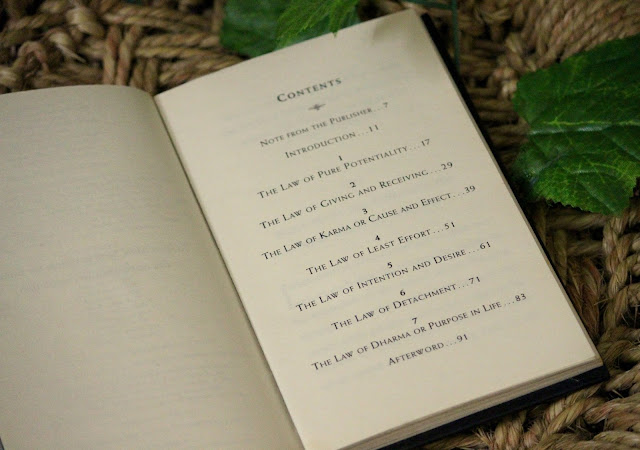 CONTENTS
NOTE FROM THE PUBLISHER...7
INTRODUCTION...11
1
THE LAW OF PURE POTENTIALITY...17
2
THE LAW OF GIVING AND RECEIVING...29
3
THE LAW OF KARMA OR CAUSE AND EFFECT...39
4
THE LAW OF LEAST EFFORT...51
5
THE LAW OF INTENTION AND DESIRE...61
6
THE LAW OF DETACHMENT...71
7
THE LAW OF DHARMA OR PURPOSE IN LIFE...83
AFTERWORD...91